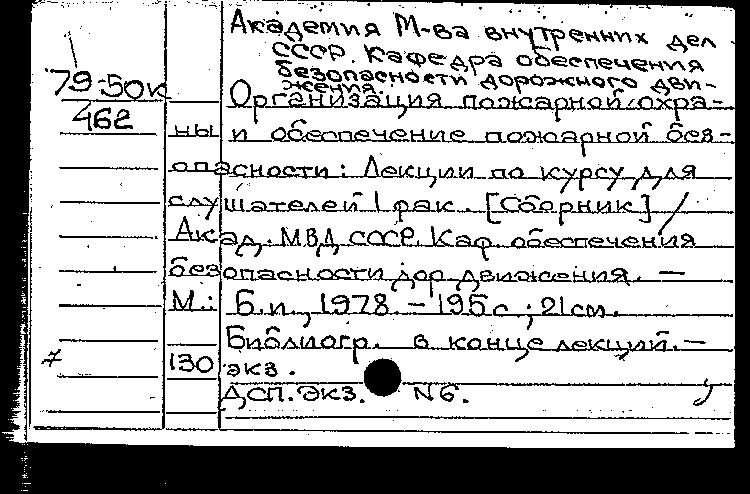 Академия М-ва внутренних дел
СССР. Кафедра обеспечения
безопасности дорожного дви-
жения.
79-50к
462
Организация пожарной охра-
ны и обеспечение пожарной без-
опасности: Лекции по курсу для
слушателей I фак. [Сборник] /
Акад. МВД СССР. Каф. обеспечения
безопасности дор. движения. —
М.: Б.и., 1978. - 195с.; 21см.
Библиогр. в конце лекций. —
130 экз.
ДСП. Экз. N6.